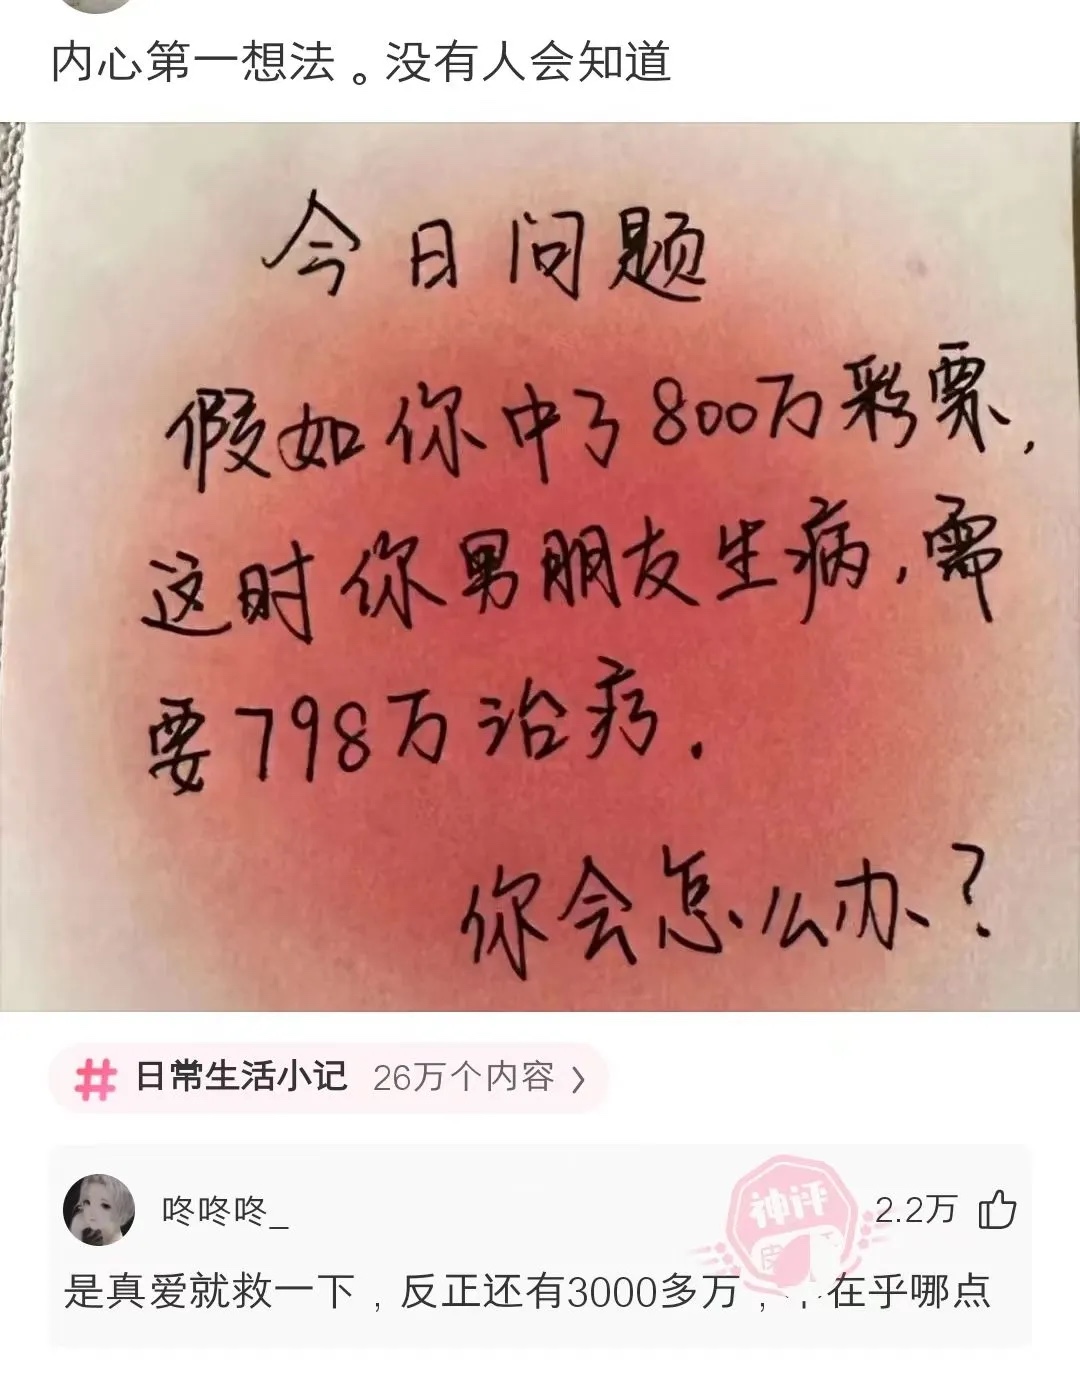 内心第一想法。没有人会知道
今日问题
假如你中了800万彩票,
这时你男朋友生病,需
要798万治疗.
你会怎么办?
日常生活小记 26万个内容
咚咚咚_
神评
2.2万
是真爱就救一下,反正还有3000多万,在乎哪点